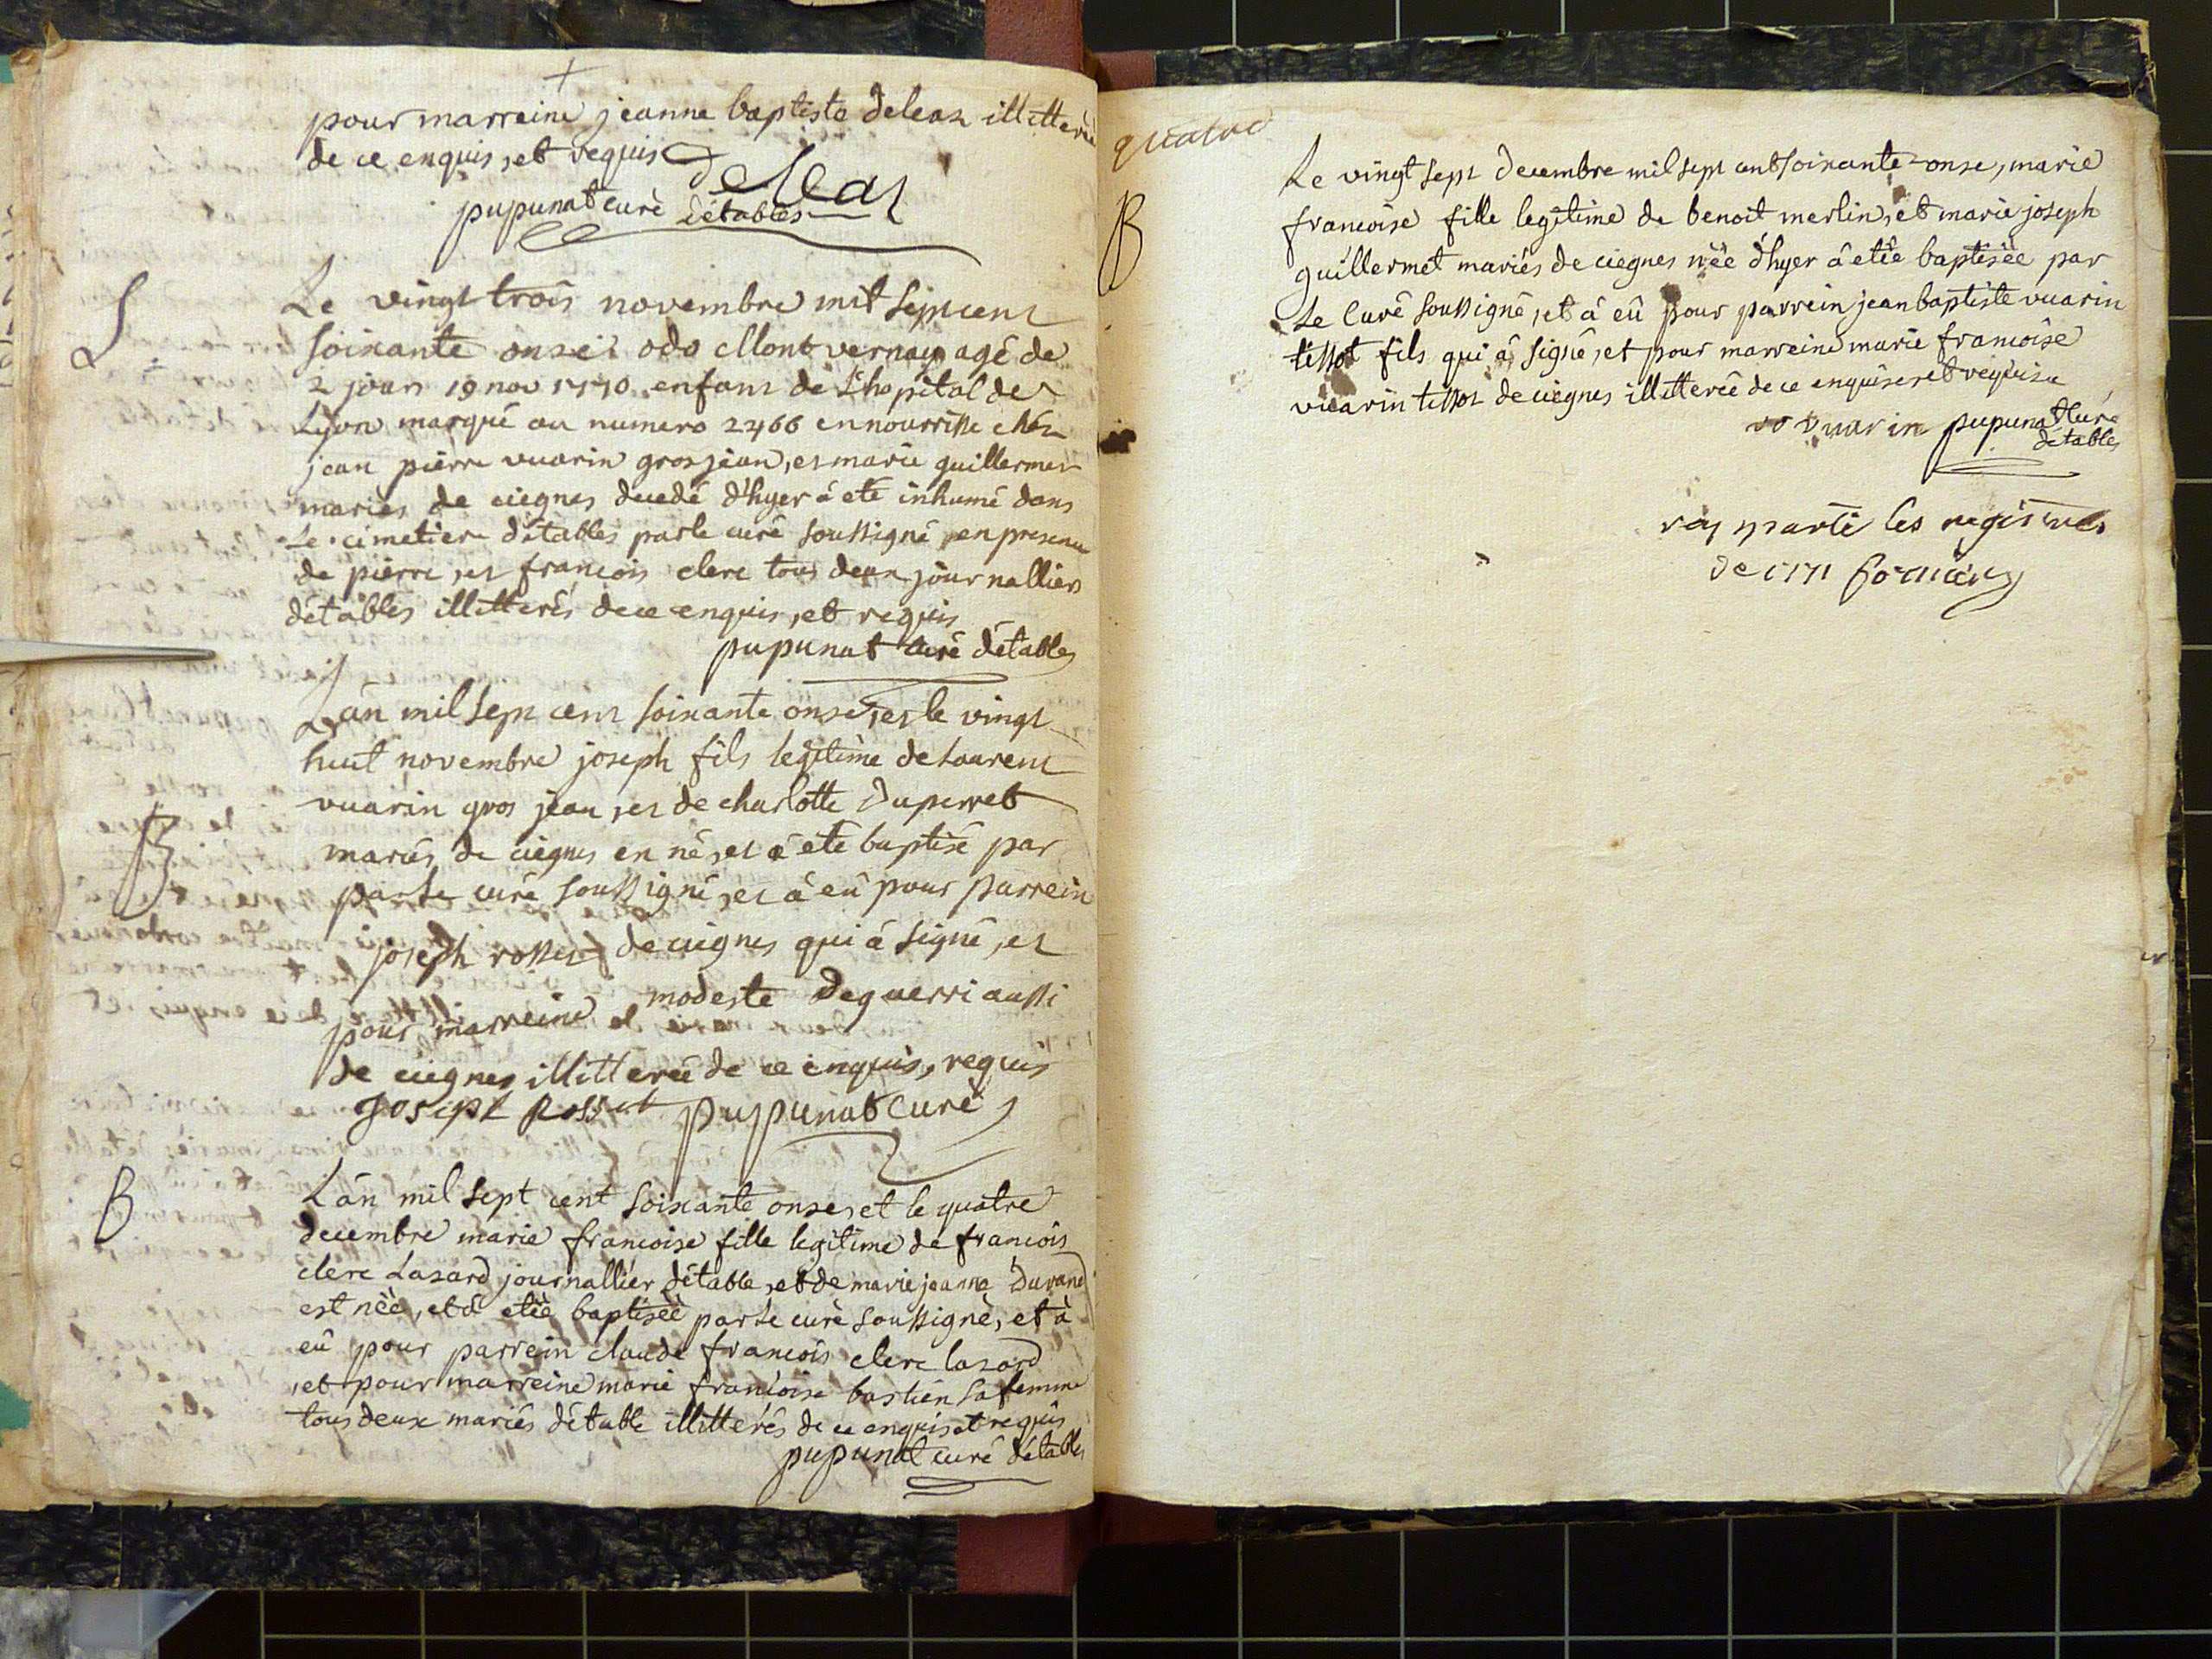 pour marreine jeanne baptiste deleaz illitterèe
de ce enquis, et requis
deleaz
pupunat curè détables
S
Le vingt trois novembre mil sept cent
soixante onze odo Mont vernay agé de
2 jours 19 nov 1770 enfant de L'hopital de
Lyon marqué au numero 2466 en nourrisse chéz
jean pierre vuarin gros jean, et marie guillermet
mariés de ciegnes decedé d'hyer á eté inhumé dans
Le cimetiere détables par le curé soussigné, en presence
de pierre, et francois clerc tous deux journalliers
détables illitterés de ce enquis, et requis
pupunat curé détables
B
L'án mil sept cent soixante onze, et le vingt
huit novembre joseph fils legitime de Laurent
vuarin gros jean, et de charlotte Duperret
mariés de ciegnes en né, et á eté baptisé par
par le curé soussigné, et á eû pour parrein
joseph rosset de ciegnes qui á signé, et
pour marreine modeste Deguerri aussi
de ciegnes illitterée de ce enquis, requis
Joseph Rosset pupunat curé
B
L'án mil sept cent soixante onze, et le quatre
decembre marie francoise fille legitime de francois
clerc Lazard journallier détable, et de marie jeanne Durand
est néè, et á etéè baptiséè par le curé soussigné, et á
eû pour parrein claude francois clerc lazard
et pour marreine marie francoise bastien sa femme
tous deux mariés détable illitterés de ce enquis et requis
pupunat curé détables
quatre
B
Le vingt sept decembre mil sept cent soixante-onze, marie
francoise fille legitime de benoit merlin, et marie joseph
guillermet mariés de ciegnes néè d'hyer á etéè baptiséè par
Le Curé soussigné, et á eû pour parrein jean baptiste vuarin
tissot fils qui á signé, et pour marreine marie francoise
vuarin tissot de ciegnes illitterée de ce enquise, et requise
vuarin pupunat Curé
détables
les registres
de 1771